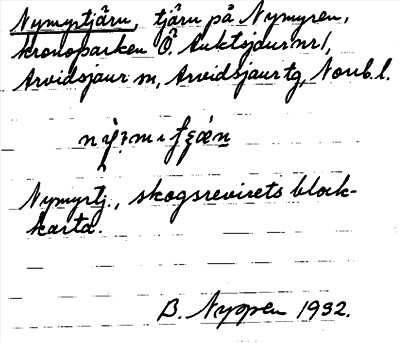 Nymyrtjärn, tjärn på Nymyren,
kronoparken Ö. Auktsjaur nr 1,
Arvidsjaur sn, Arvidsjaur tg, Norrb. l.
Nymyrtj., skogsrevirets block-
karta.
B. Nyppen 1932.